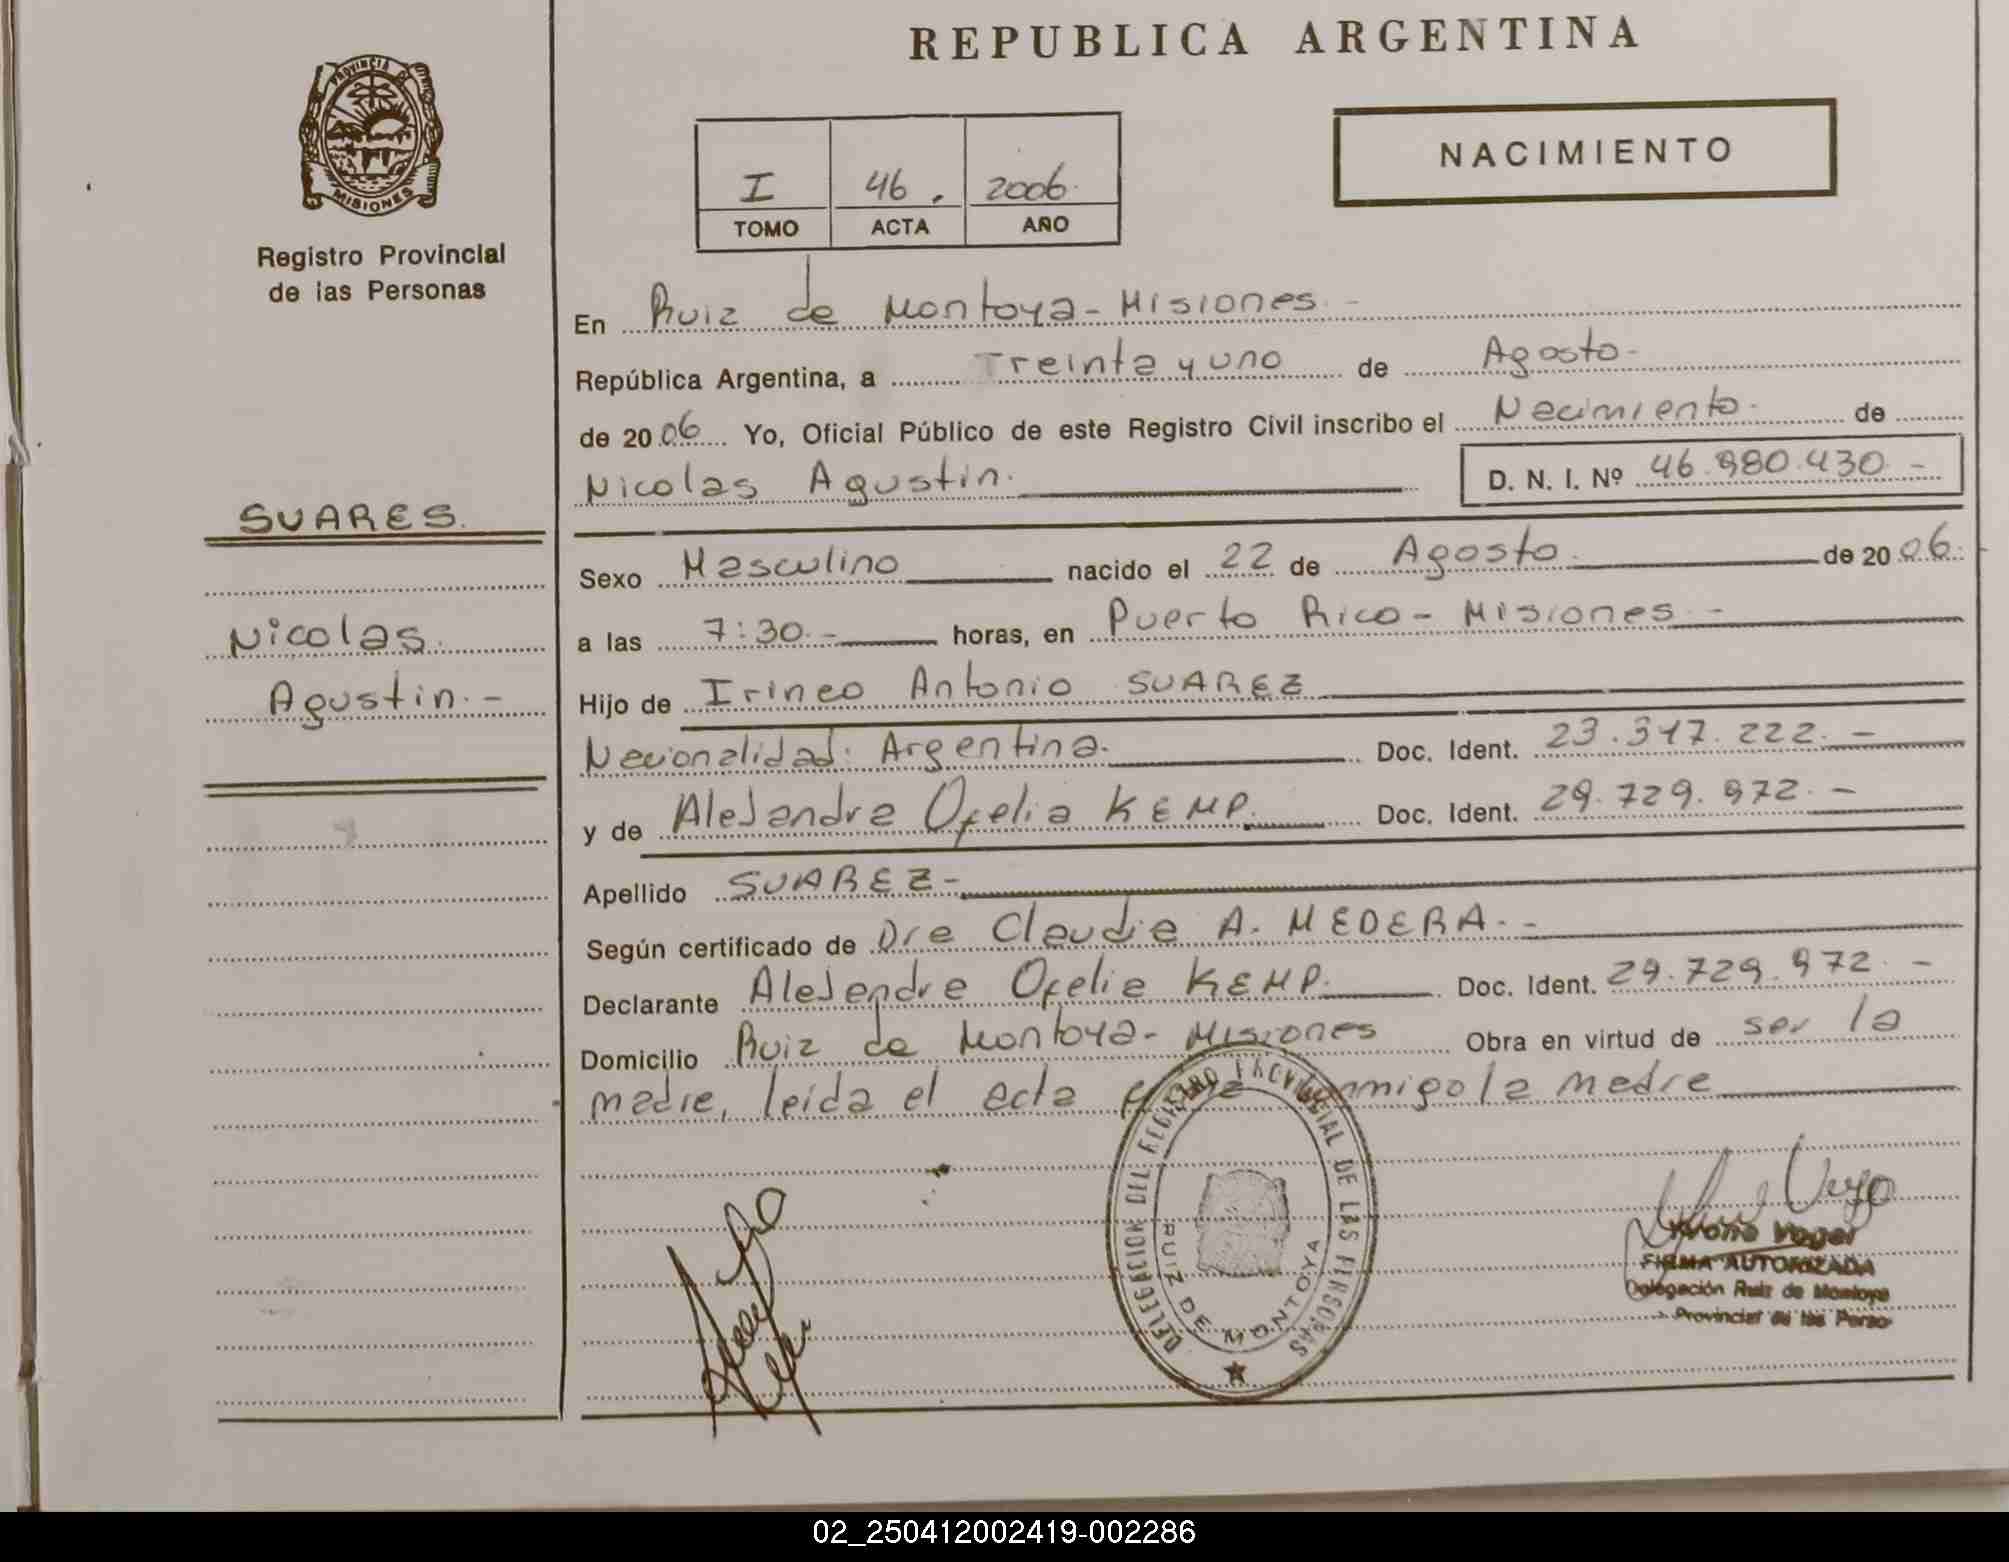 REPUBLICA ARGENTINA
PROVINCIA DE
MISIONES
Registro Provincial
de las Personas
NACIMIENTO
I 46. 2006.
TOMO ACTA AÑO
En Ruiz de Montoya - Misiones. -
República Argentina, a Treinta y uno de Agosto -
de 20 06 Yo, Oficial Público de este Registro Civil inscribo el Nacimiento. de
Nicolas Agustin. D. N. I. Nº 46.980.430. -
SUARES.
Nicolas
Agustin. -
Sexo Masculino nacido el 22 de Agosto. de 20 06.
a las 7:30. - horas, en Puerto Rico - Misiones. -
Hijo de Irineo Antonio SUAREZ
Nacionalidad: Argentina. Doc. Ident. 23.317.222. -
y de Alejandra Ofelia KEMP. Doc. Ident. 29.729.972. -
Apellido SUAREZ -
Según certificado de Dra Claudia A. MEDERA. -
Declarante Alejandra Ofelia KEMP. Doc. Ident. 29.729.972. -
Domicilio Ruiz de Montoya - Misiones Obra en virtud de ser la
madre, leída el acta conmigo la madre
DELEGACION DEL REGISTRO PROVINCIAL DE LAS PERSONAS
RUIZ DE MONTOYA
FIRMA AUTORIZADA
Delegación Ruiz de Montoya
Provincial de las Perso
02_250412002419-002286